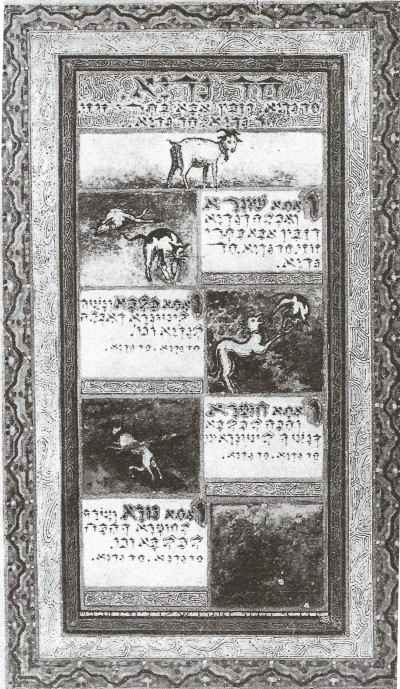 חד גדיא
חד גדיא דזבין אבא בתרי זוזי
חד גדיא. חד גדיא
ואתא שונרא
ואכלה לגדיא
דזבין אבא בתרי
זוזי. חד גדיא. חד
גדיא.
ואתא כלבא ונשך
לשונרא דאכלה
לגדיא וכו'.
חד גדיא. חד גדיא.
ואתא חוטרא
והכה לכלבא
דנשך לשונרא
חד גדיא. חד גדיא.
ואתא נורא ושרף
לחוטרא דהכה
לכלבא וכו'.
חד גדיא. חד גדיא.